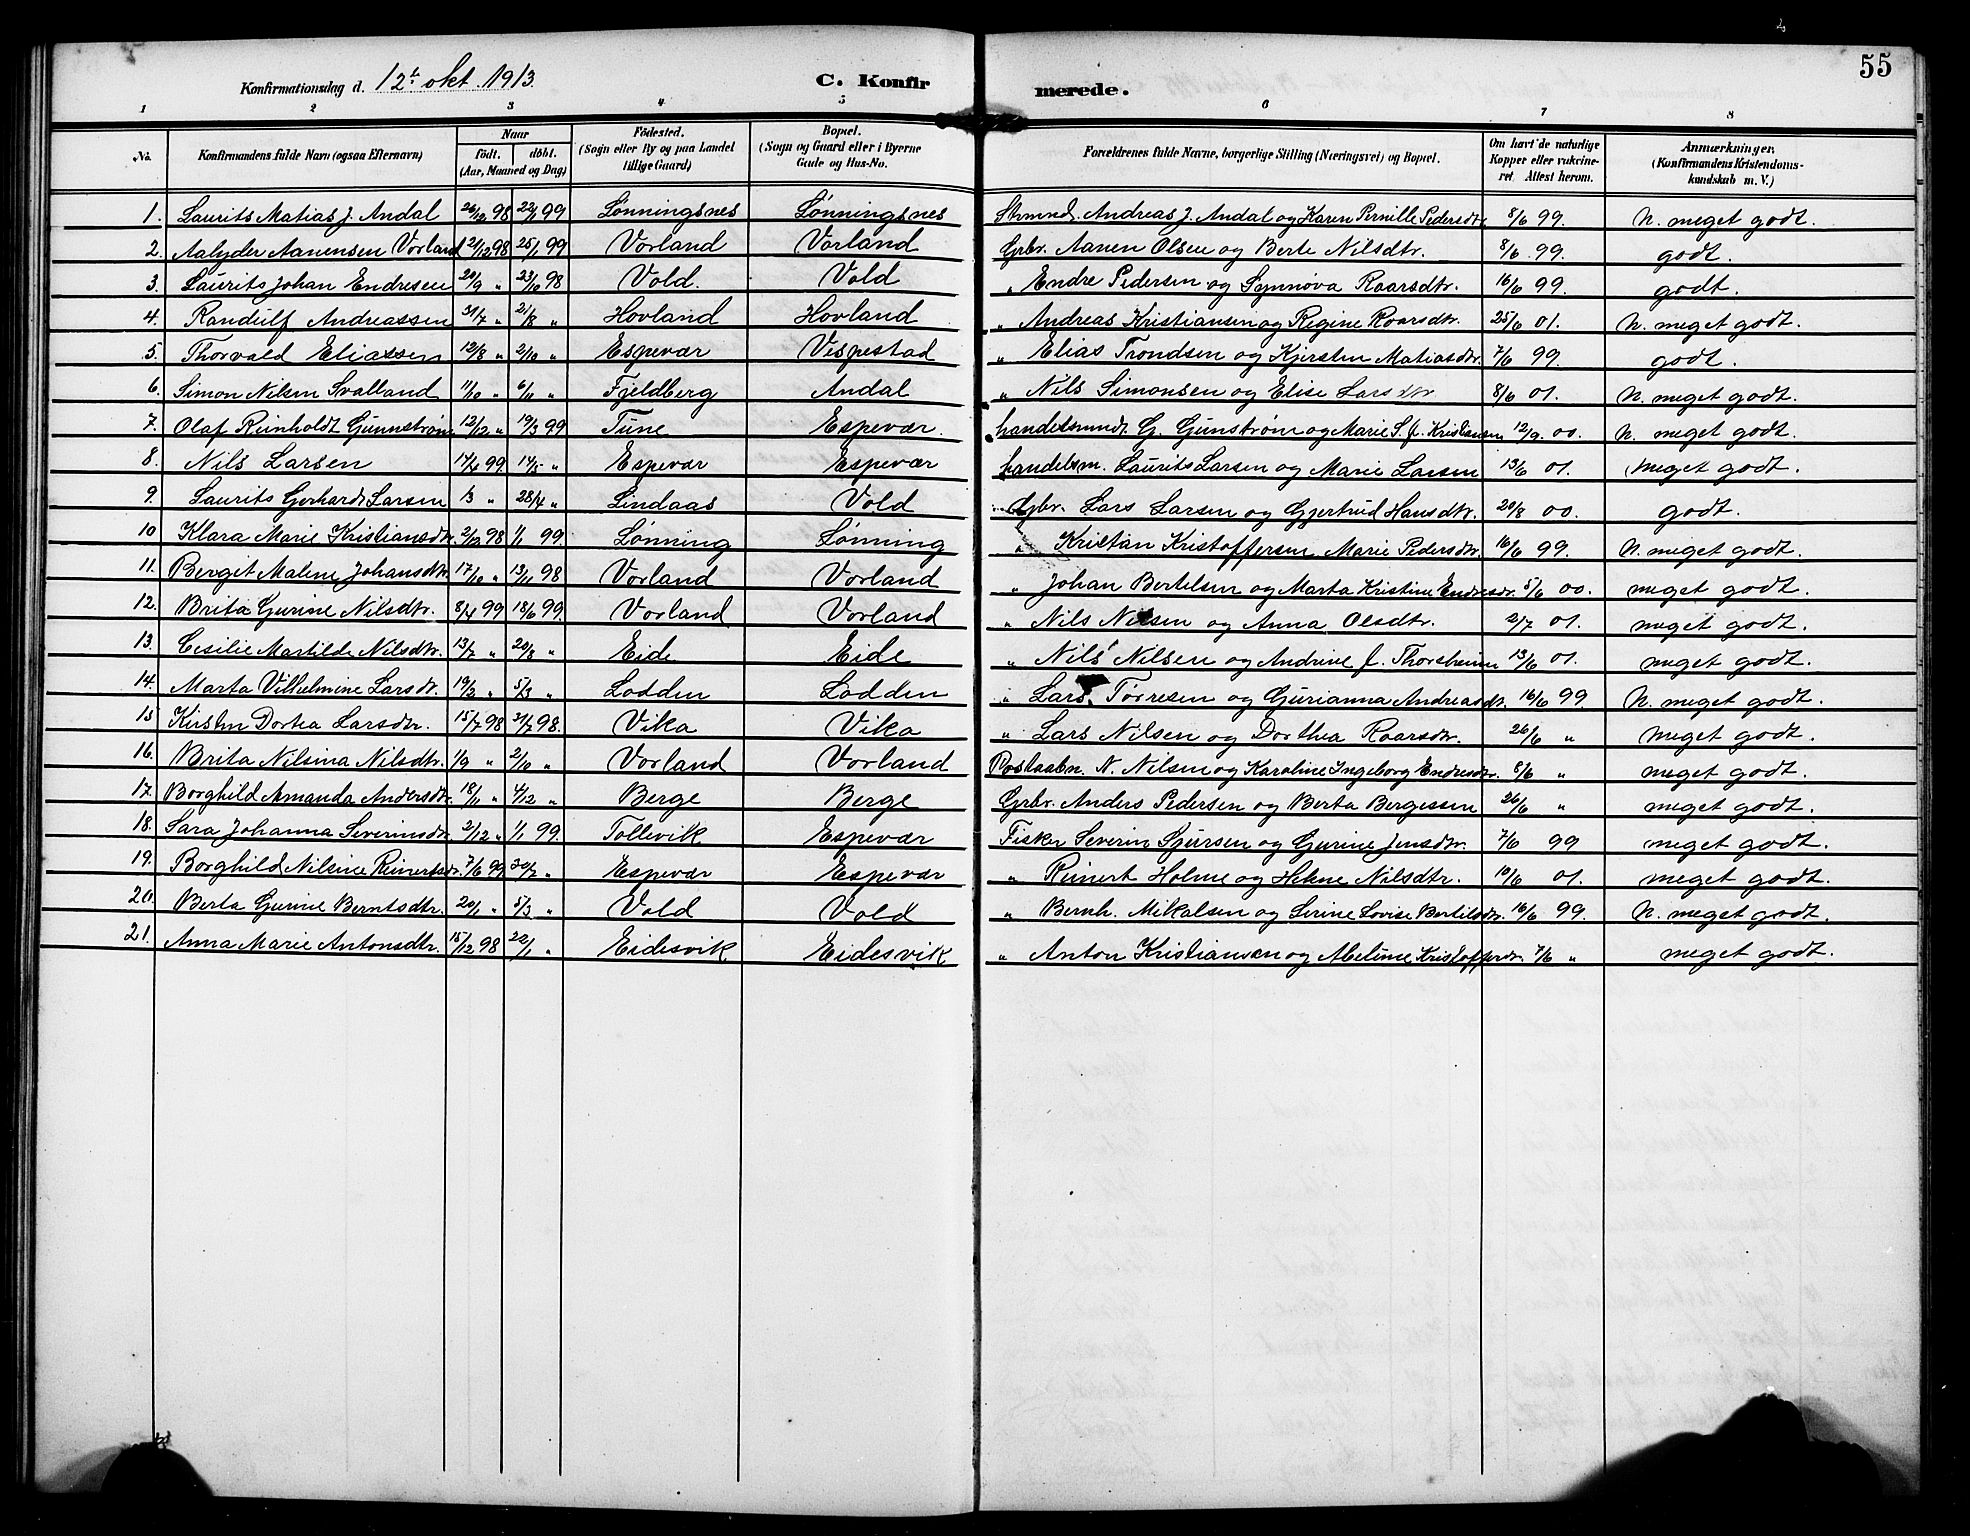 55
Konfirmationsdag d. 12t. okt. 1913. C. Konfirmerede.
1 2 3 4 5 6 7 8
No. Konfirmandens fulde Navn (ogsaa Efternavn) Naar født. døbt. (Aar, Maaned og Dag) Födested. (Sogn eller By og paa Landet tillige Gaard) Bopæl. (Sogn og Gaard eller i Byerne Gade og Hus-No. Forældrenes fulde Navne, borgerlige Stilling (Næringsvei) og Bopæl. Om havt de naturlige Kopper eller vakcineret. Attest herom. Anmærkninger, (Konfirmandens Kristendomskundskab m. V.)
1. Laurits Matias J. Andal 26/12 98 22/1 99 Lønningsnes Lønningsnes Strmd. Andreas J. Andal og Karen Pernille Pedersdtr. 8/6 99. N. meget godt.
2. Aanensen Vorland 21/12 98 25/1 99 Vorland Vorland Grbr. Aanen Olsen og Berte Nilsdtr. 8/6 99. godt.
3. Laurits Johan Endresen 20/9 " 23/10 98 Vold. Vold " Endre Pedersen og Synnøva Roarsdtr. 16/6 99. godt.
4. Randulf Andreassen 31/7 " 21/8 " Hovland Hovland " Andreas Kristiansen og Regine Roarsdtr. 25/6 01. N. meget godt.
5. Thorvald Eliassen 12/8 " 2/10 " Espevær Vespestad " Elias Trondsen og Kjersten Matiasdtr. 7/6 99. godt.
6. Simon Nilsen Svalland 11/10 " 6/11 " Fjeldberg Andal " Nils Simonsen og Elise Larsdtr 8/6 01. N. meget godt.
7. Olaf Reinholdt Gunnstrøm 12/12 " 19/3 99 Tune Espevær. handelsmndt. G. Gunstrøm og Marie S. f. Kristiansen 12/9. 00. N. meget godt.
8. Nils Larsen 14/4 99 14/5 " Espevær Espevær handelsm. Laurits Larsen og Marie Larsen 13/6 01. meget godt.
9. Laurits Gerhard Larsen 1/3 " 28/4 " Lindaas Vold Grbr. Lars Larsen og Gjertrud Hansdtr. 20/8 00. godt.
10 Klara Marie Kristiansdtr. 98 1/1 99. Lønning Lønning " Kristan Kristoffersen Marie Pedersdtr. 16/6 99. N. meget godt.
11. Bergit Malene Johansdtr. 17/10 " 13/11 98 Vorland Vorland " Johan Bertelsen og Marta Kristine Endresdr. 5/6 00. meget godt.
12. Brita Gurine Nilsdtr. 8/4 99 18/6 99. Vorland Vorland " Nils Nilsen og Anna Olsdtr. 2/7 01. meget godt.
13. Cesilie Martilde Nilsdtr. 13/7 " 20/8 " Eide Eide " Nils Nilsen og Andrine f. Thorsheim 13/6 01. meget godt.
14. Marta Vilhelmine Larsdr. 19/2 " 5/3 " Lodden Lodden " Lars Tørresen og Gurianna Andreasdtr. 16/6 99. N. meget godt.
15 Kirsten Dortea Larsdtr. 15/7 98 31/7 98. Vika Vika " Lars Nilsen og Dorthea Roarsdtr. 26/6 " meget godt.
16. Brita Nilsina Nilsdtr. 1/9 " 2/10 " Vorland Vorland Postaabn. N. Nilsen og Karoline Ingeborg Endresdtr. 8/6 " meget godt.
17. Borghild Amanda Andersdtr. 18/11 " 4/12 " Berge Berge Grbr. Anders Pedersen og Berta Bergessen 26/6 " meget godt.
18. Sara Johanna Severinsdtr. 2/12 " 1/1 99. Tollevik Espevær Fisker Severin Sjursen og Gurine Jensdtr. 7/6 99 meget godt.
19. Borghild Nilsine Reinertsdr. 7/6 99 30/7 " Espevær Espevær " Reinert Holme og Helene Nilsdtr. 10/6 01. meget godt.
20. Berta Gurine Berntsdtr. 20/1 " 5/3 " Vold Vold " Bernh. Mikalsen og Serine Lovise Bertilsdtr. 16/6 99. N. meget godt.
21. Anna Marie Antonsdtr. 15/12 98 22/1 " Eidesvik Eidesvik " Anton Kristiansen og Abeline Kristofferdr. 7/6 " meget godt.